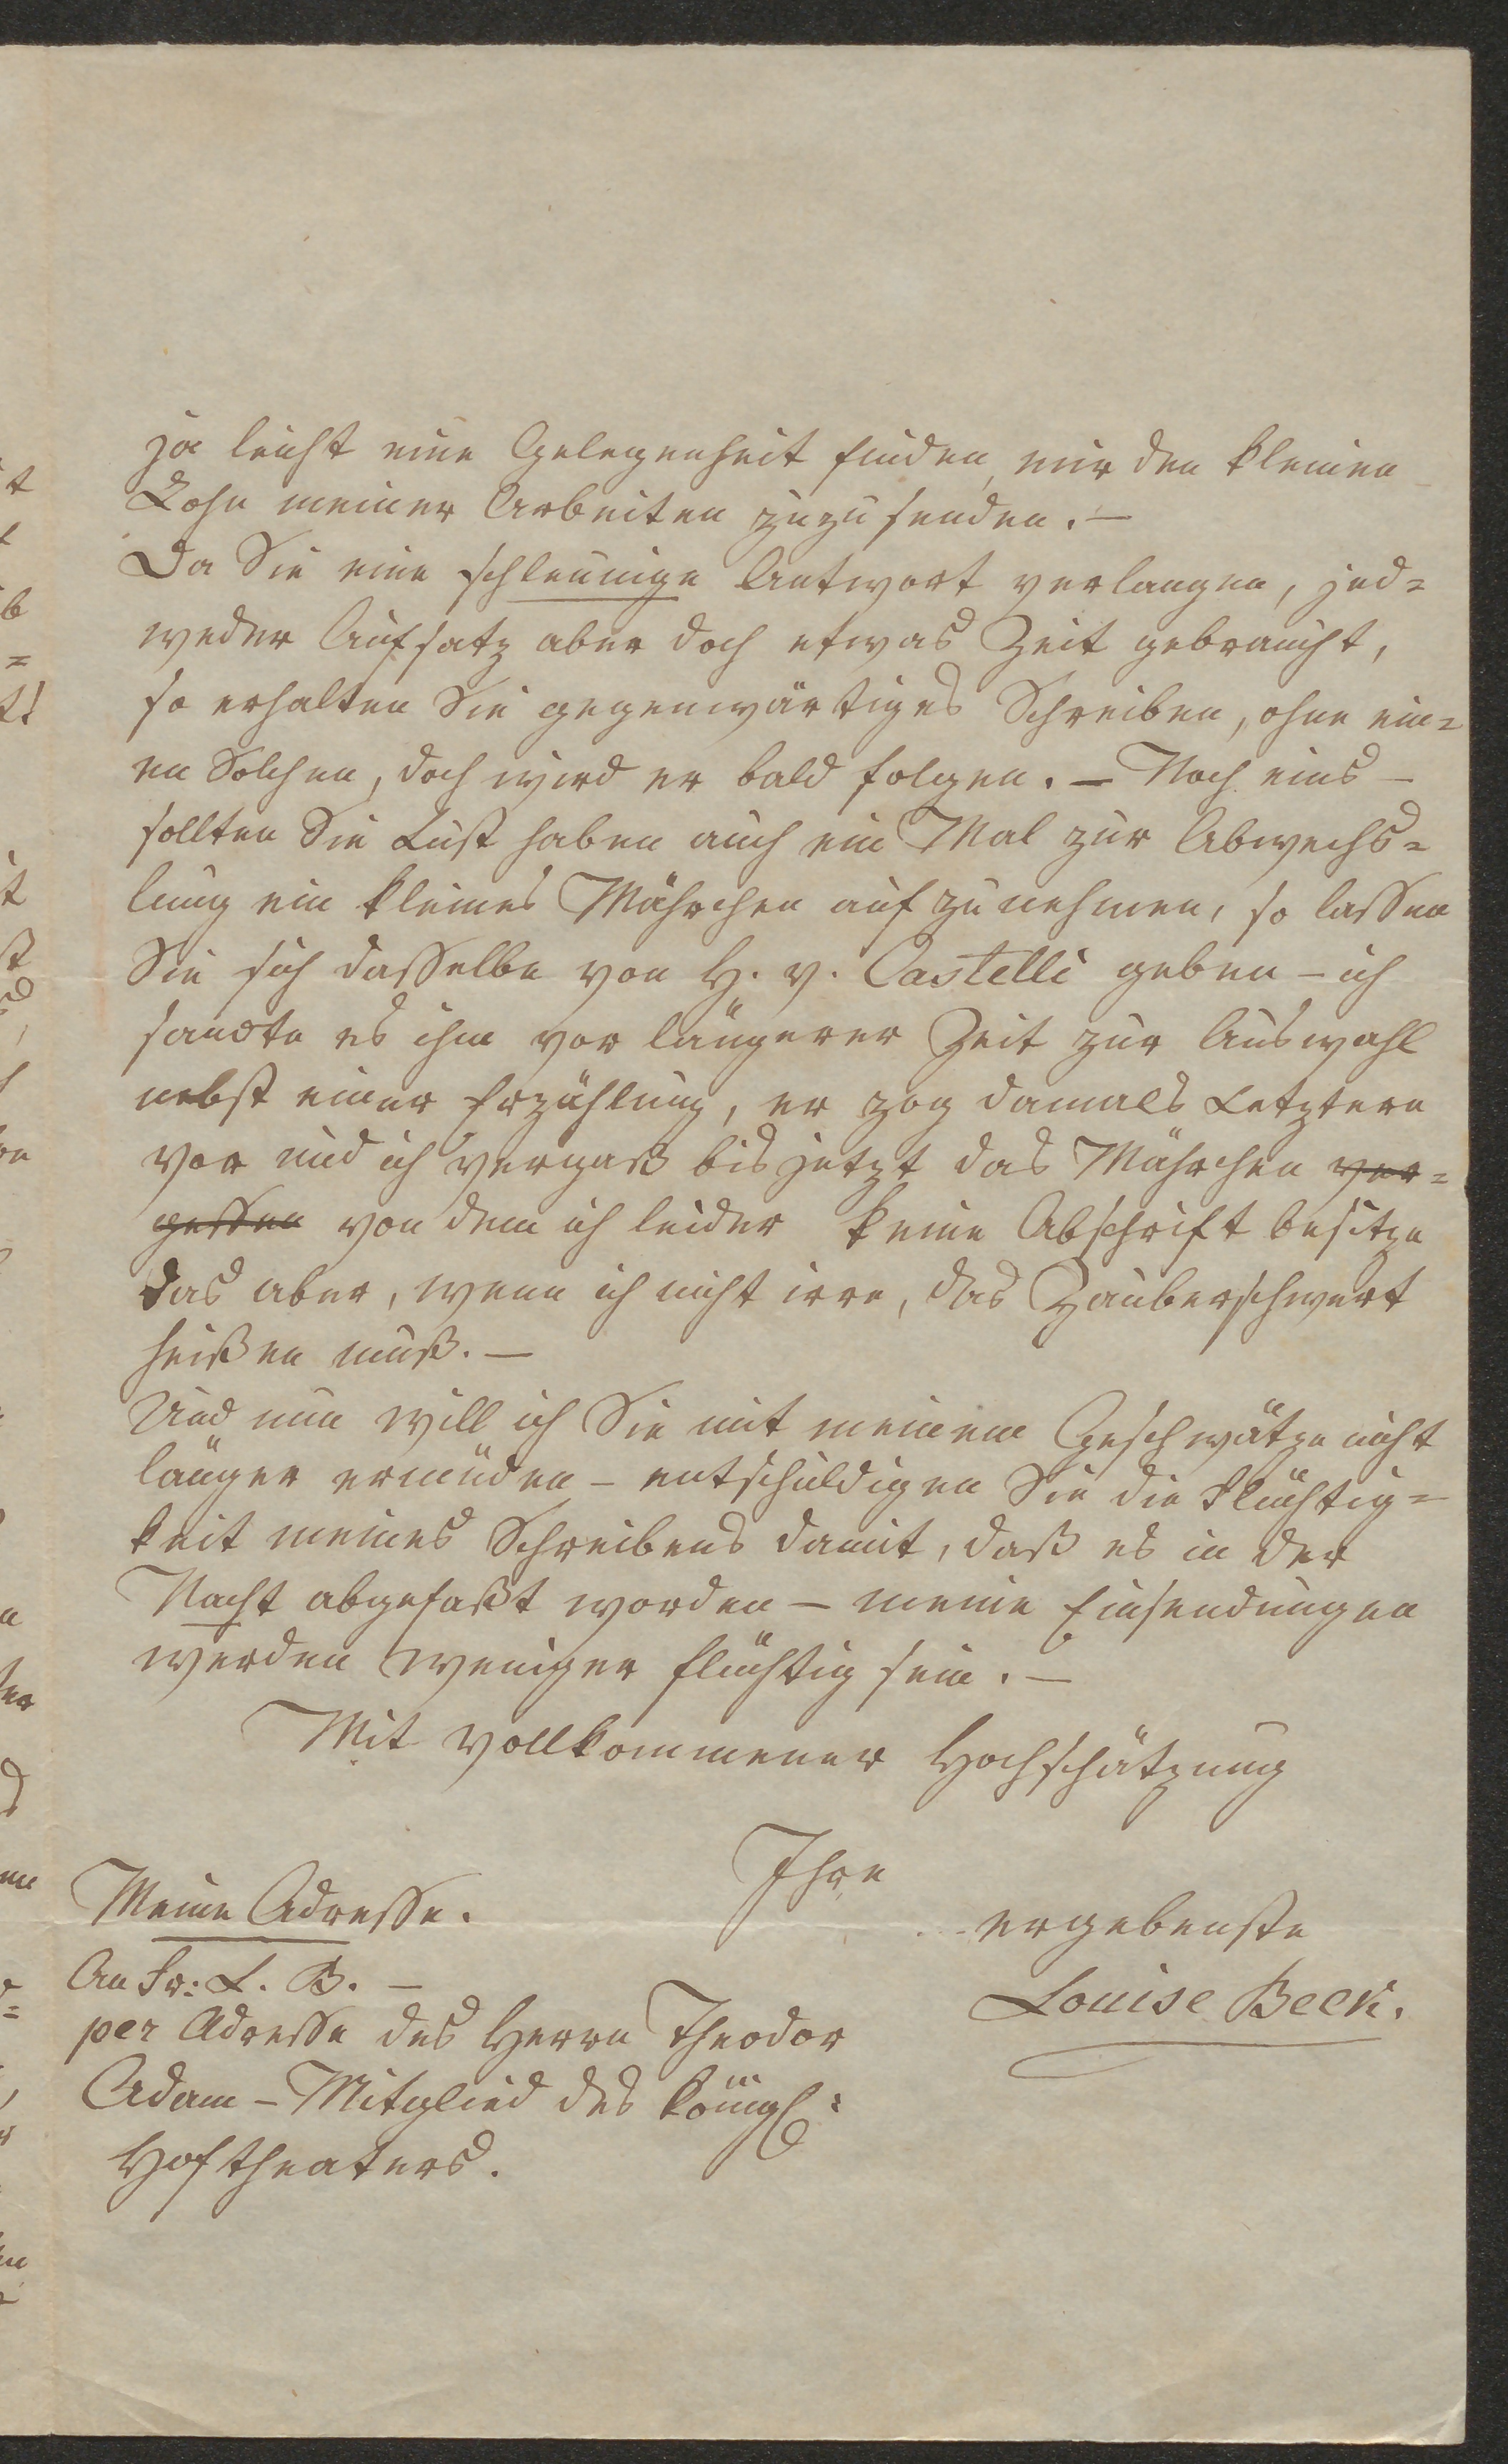 ja leicht eine Gelegenheit finden, mir den kleinen
Lohn meiner Arbeiten zuzusenden. —
Da Sie eine schleunige Antwort verlangen, jed=
weder Aufsatz aber doch etwas Zeit gebraucht,
so erhalten Sie gegenwärtiges Schreiben, ohne ein=
en Solchen, doch wird er bald folgen. — Noch eins —
sollten Sie Lust haben auch ein Mal zur Abwechs=
lung ein kleines Mährchen aufzunehmen, so lassen
Sie sich dasselbe von H. v. Castelli geben — ich
sandte es ihm vor längerer Zeit zur Auswahl
nebst einer Erzählung, er zog damals Letztere
vor und ich vergaß bis jetzt das Mährchen ver=
gessen von dem ich leider keine Abschrift besitze
das aber, wenn ich nicht irre, das Zauberschwert
heißen muß. —
Und nun will ich Sie mit meinem Geschwätze nicht
länger ermüden — entschuldigen Sie die Flüchtig=
keit meines Schreibens damit, daß es in der
Nacht abgefaßt worden — meine Einsendungen
werden weniger flüchtig sein. —
Mit vollkommener Hochschätzung
Ihre
ergebenste
Louise Beck.
Meine Adresse.
An Fr: L. B. —
per Adresse des Herrn Theodor
Adam — Mitglied des königl:
Hoftheaters.